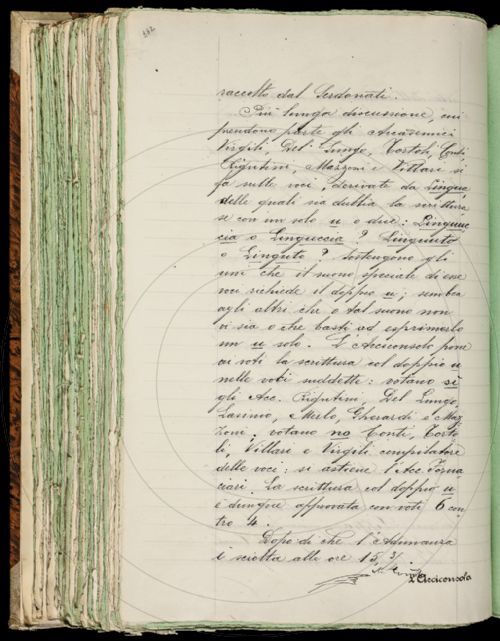 raccolto dal Serdonati.
Più lunga discussione, cui
prendono parte gli Accademici
Virgili, Del Lungo, Tortoli, Conti
Rigutini, Mazzoni e Villari si
fa sulle voci, derivate da Lingua,
delle quali sia dubbia la scrittura
se con un solo u o due: Linguuc
cia o Linguccia? Linguuto
o Linguto? Sostengono gli
uni che il suono speciale di esse
voci richiede il doppio u; sembra
agli altri che o tal suono non
vi sia o che basti ad esprimerlo
un u solo. L'Arciconsolo pone
ai voti la scrittura col doppio u
nelle voci suddette: votano sì
gli Acc. Rigutini, Del Lungo,
Merlo, Gherardi e Maz
zoni, votano no Conti, Torto
li, Villari e Virgili compilatore
delle voci: si astiene l'Acc. Forna
ciari. La scrittura col doppio u
è dunque approvata con voti 6 con
tro 4.
Dopo di che l'Adunanza
è sciolta alle ore 15
L'Arciconsolo